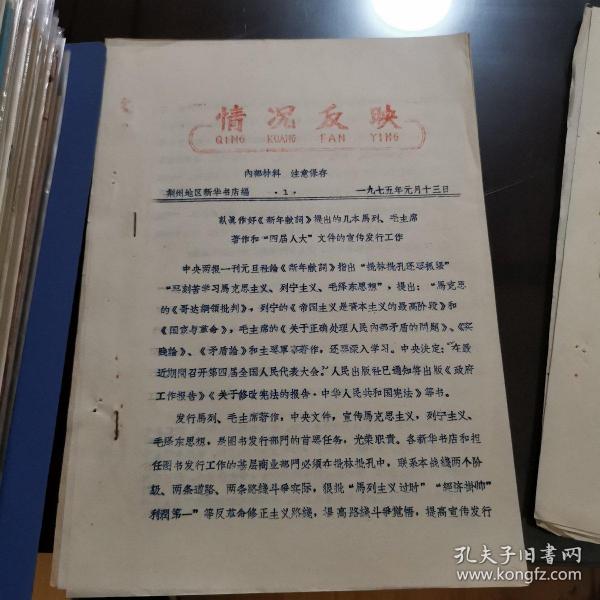 情况反映
QING KUANG FAN YING
内部材料 注意保存
荆州地区新华书店编 ·1· 一九七五年元月十三日
認真作好《新年献詞》提出的几本馬列、毛主席
著作和“四届人大”文件的宣传发行工作
中央两报一刊元旦社論《新年献詞》指出“批林批孔还要抓紧”
刻苦学习馬克思主义、列宁主义、毛泽东思想”，提出：“馬克思
的《哥达綱領批判》，列宁的《帝国主义是資本主义的最高阶段》和
《国家与革命》，毛主席的《关于正确处理人民內部矛盾的問題》、《实
践論》、《矛盾論》和主要軍事著作，还要深入学习。中央决定：在最
近期間召开第四届全国人民代表大会”人民出版社已通知将出版《政府
工作报告》《关于修改宪法的报告·中华人民共和国宪法》等书。
发行馬列、毛主席著作，中央文件，宣传馬克思主义，列宁主义、
毛泽东思想，是图书发行部門的首要任务，光荣职責。各新华书店和担
任图书发行工作的基层商业部門必須在批林批孔中，联系本战綫两个阶
級、两条道路、两条路綫斗爭实际，狠批“馬列主义过时”“經济掛帅”
利潤第一”等反革命修正主义路綫，提高路綫斗爭覚悟，提高宣传发行
孔夫子旧书网
www.kongfz.com